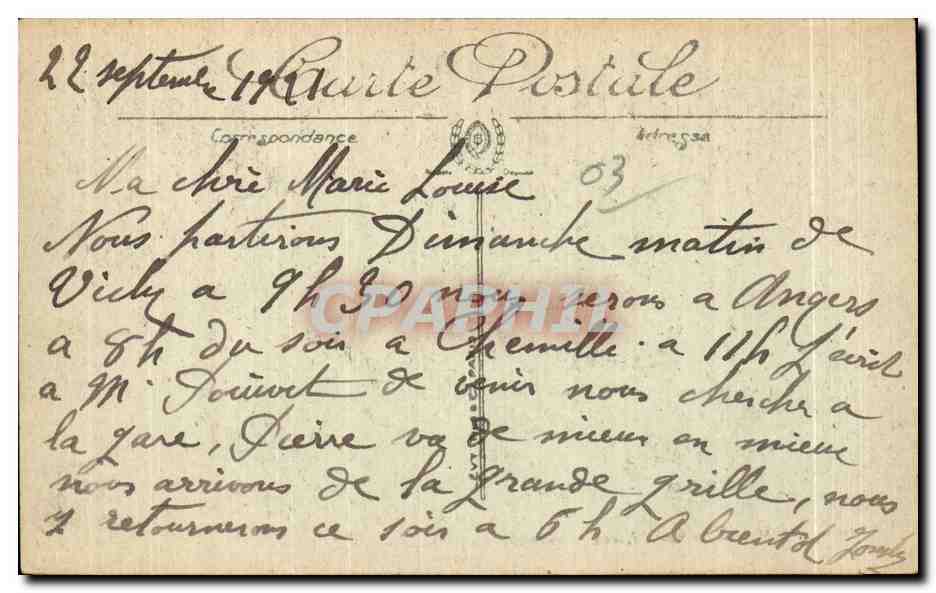 Carte Postale
22 septembre 1921
Correspondance
Adresse
Ma chère Marie Louise
03
Nous partirons Dimanche matin de
Vichy a 9h 30 nous serons a Angers
CPAPHIL
a 8h du soir a Chemillé a 11h J'écrit
a Mr de venir nous cherche a
la gare, Pierre va de mieux en mieux
nous arrivons de la grande grille, nous
y retournerons ce soir a 6h A bientôt